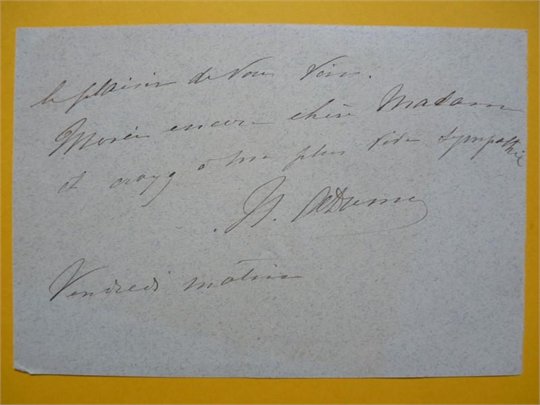 le plaisir de vous voir.
Merci encore chère Madame
et croyez à ma plus vive sympathie
Vendredi matin